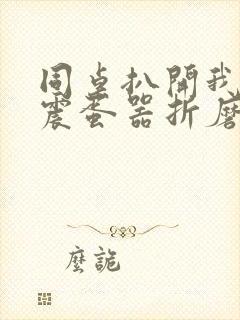 同桌扒開我
震蛋器折磨
麽詭